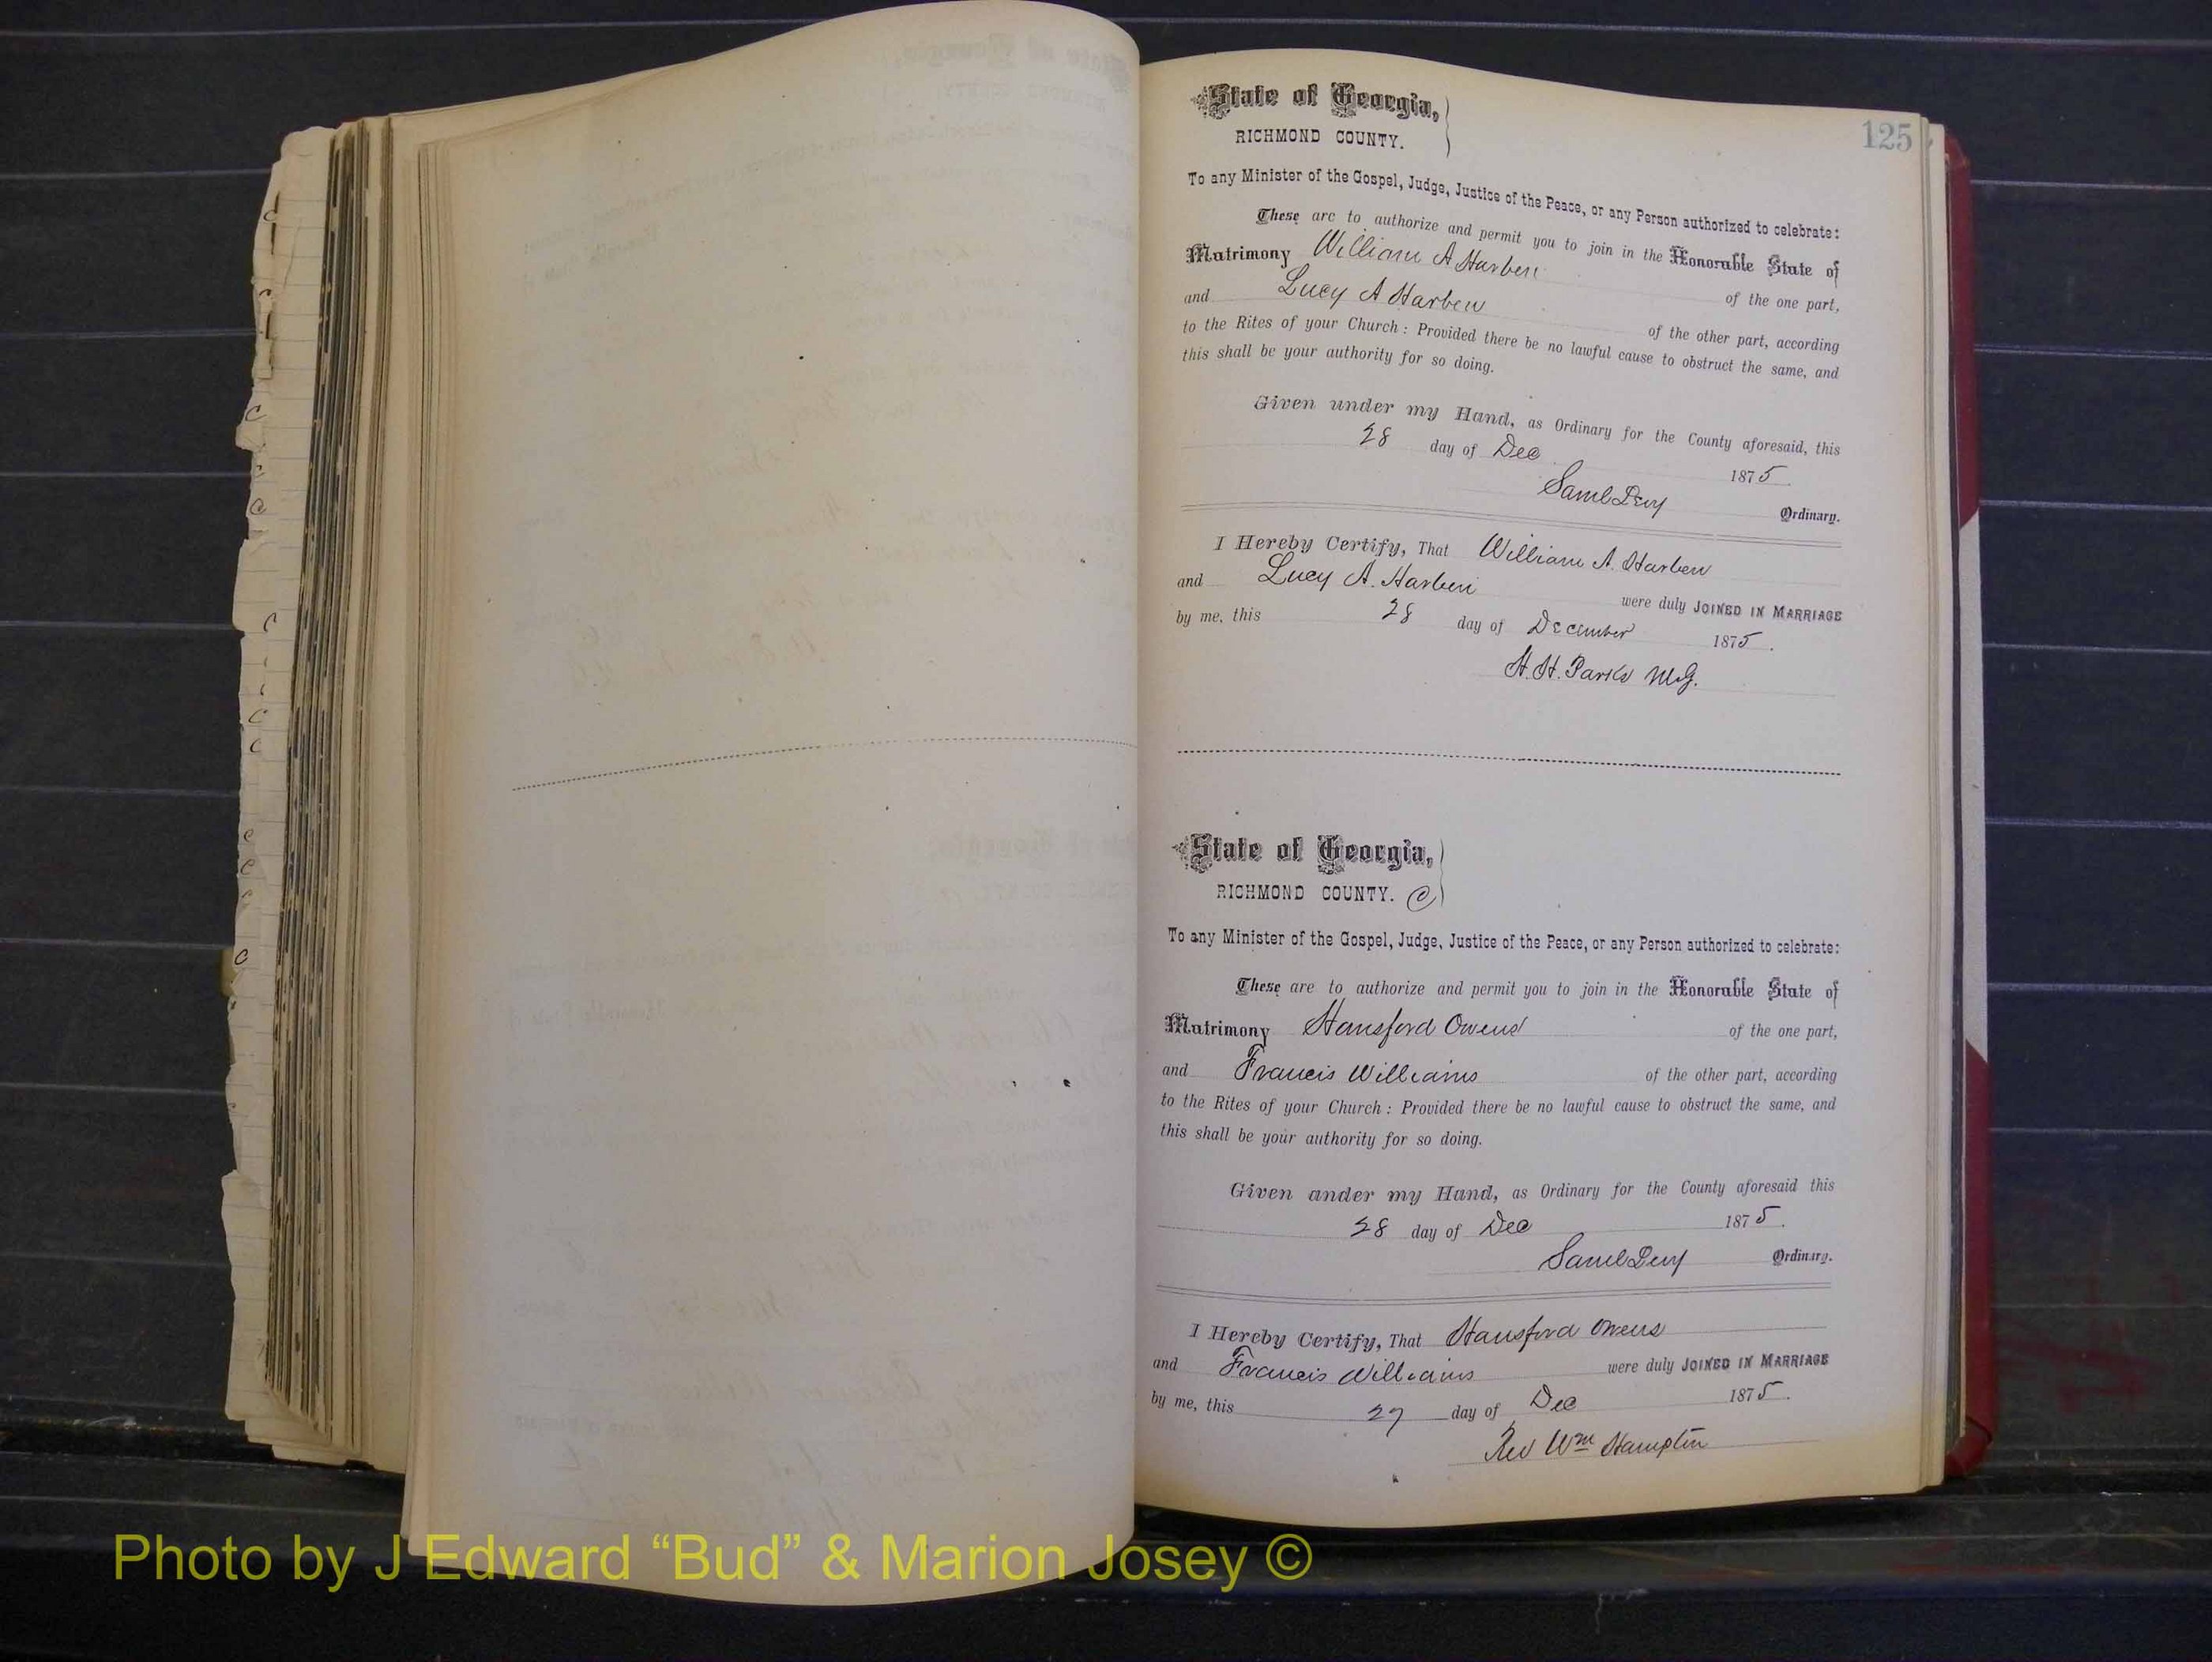 125
State of Georgia,
RICHMOND COUNTY.
To any Minister of the Gospel, Judge, Justice of the Peace, or any Person authorized to celebrate:
These are to authorize and permit you to join in the Honorable State of
Matrimony William A Harben of the one part,
and Lucy A Harben of the other part, according
to the Rites of your Church: Provided there be no lawful cause to obstruct the same, and
this shall be your authority for so doing.
Given under my Hand, as Ordinary for the County aforesaid, this
28 day of Dec 1875
Saml Levy Ordinary.
I Hereby Certify, That William A. Harben
and Lucy A. Harben were duly JOINED IN MARRIAGE
by me, this 28 day of December 1875.
H. H. Parks M.G.
State of Georgia,
RICHMOND COUNTY. C
To any Minister of the Gospel, Judge, Justice of the Peace, or any Person authorized to celebrate:
These are to authorize and permit you to join in the Honorable State of
Matrimony Hansford Owens of the one part,
and Francis Williams of the other part, according
to the Rites of your Church: Provided there be no lawful cause to obstruct the same, and
this shall be your authority for so doing.
Given under my Hand, as Ordinary for the County aforesaid this
28 day of Dec 1875.
Saml Levy Ordinary.
I Hereby Certify, That Hansford Owens
and Francis Williams were duly JOINED IN MARRIAGE
by me, this 29 day of Dec 1875.
Rev Wm Hampton
Photo by J Edward “Bud” & Marion Josey ©